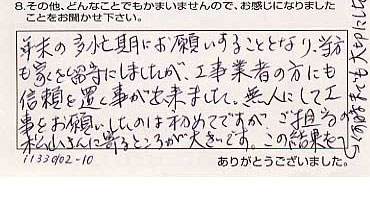 8.その他、どんなことでもかまいませんので、お感じになりました
ことをお聞かせ下さい。
年末の多忙期にお願いすることとなり、当方
も家を留守にしましたが、工事業者の方にも
信頼を置く事が出来ました。無人にして工
事をお願いしたのは初めてですが、ご担当の
松山さんに寄るところが大きいです。この結果を
いつまでも大切にし
1133902-10
ありがとうございました。